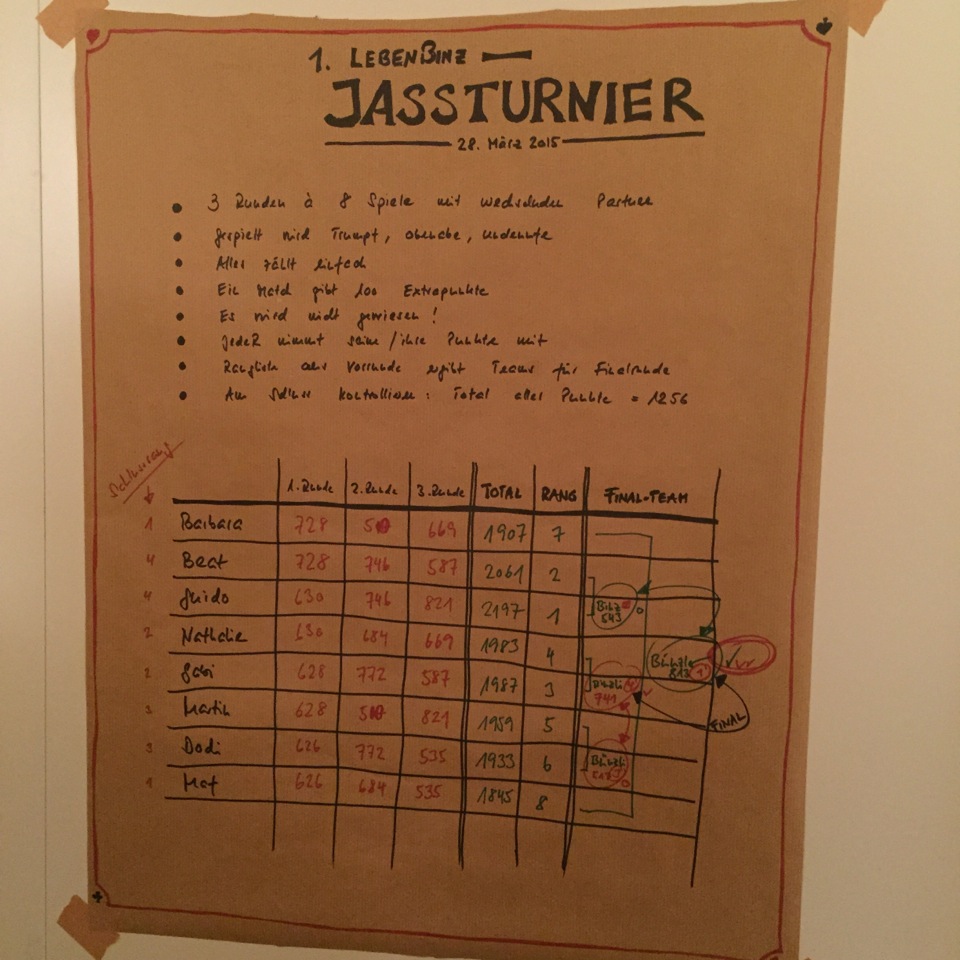 1. LEBENBINZ
JASSTURNIER
28. März 2015
• 3 Runden à 8 Spiele mit wechselnden Partner
• gespielt wird Trumpf, obenabe, undenufe
• Alles zählt einfach
• Ein Match gibt 100 Extrapunkte
• Es wird nicht gewiesen!
• JedeR nimmt seine/ihre Punkte mit
• Rangliste der Vorrunde ergibt Teams für Finalrunde
• Am Schluss kontrollieren: Total aller Punkte = 1256
1. Runde 2. Runde 3. Runde TOTAL RANG FINAL-TEAM
1 Barbara 728 510 669 1907 7
4 Beat 728 746 587 2061 2
4 Guido 630 746 821 2197 1
Binz
543
2 Nathalie 630 684 669 1983 4
Bünzle
2 Gabi 628 772 587 1987 3
Bünzli
741
Martin 628 510 821 1959 5
FINAL
3 Dodi 626 772 535 1933 6
Bünzli
1 Mat 626 684 535 1845 8